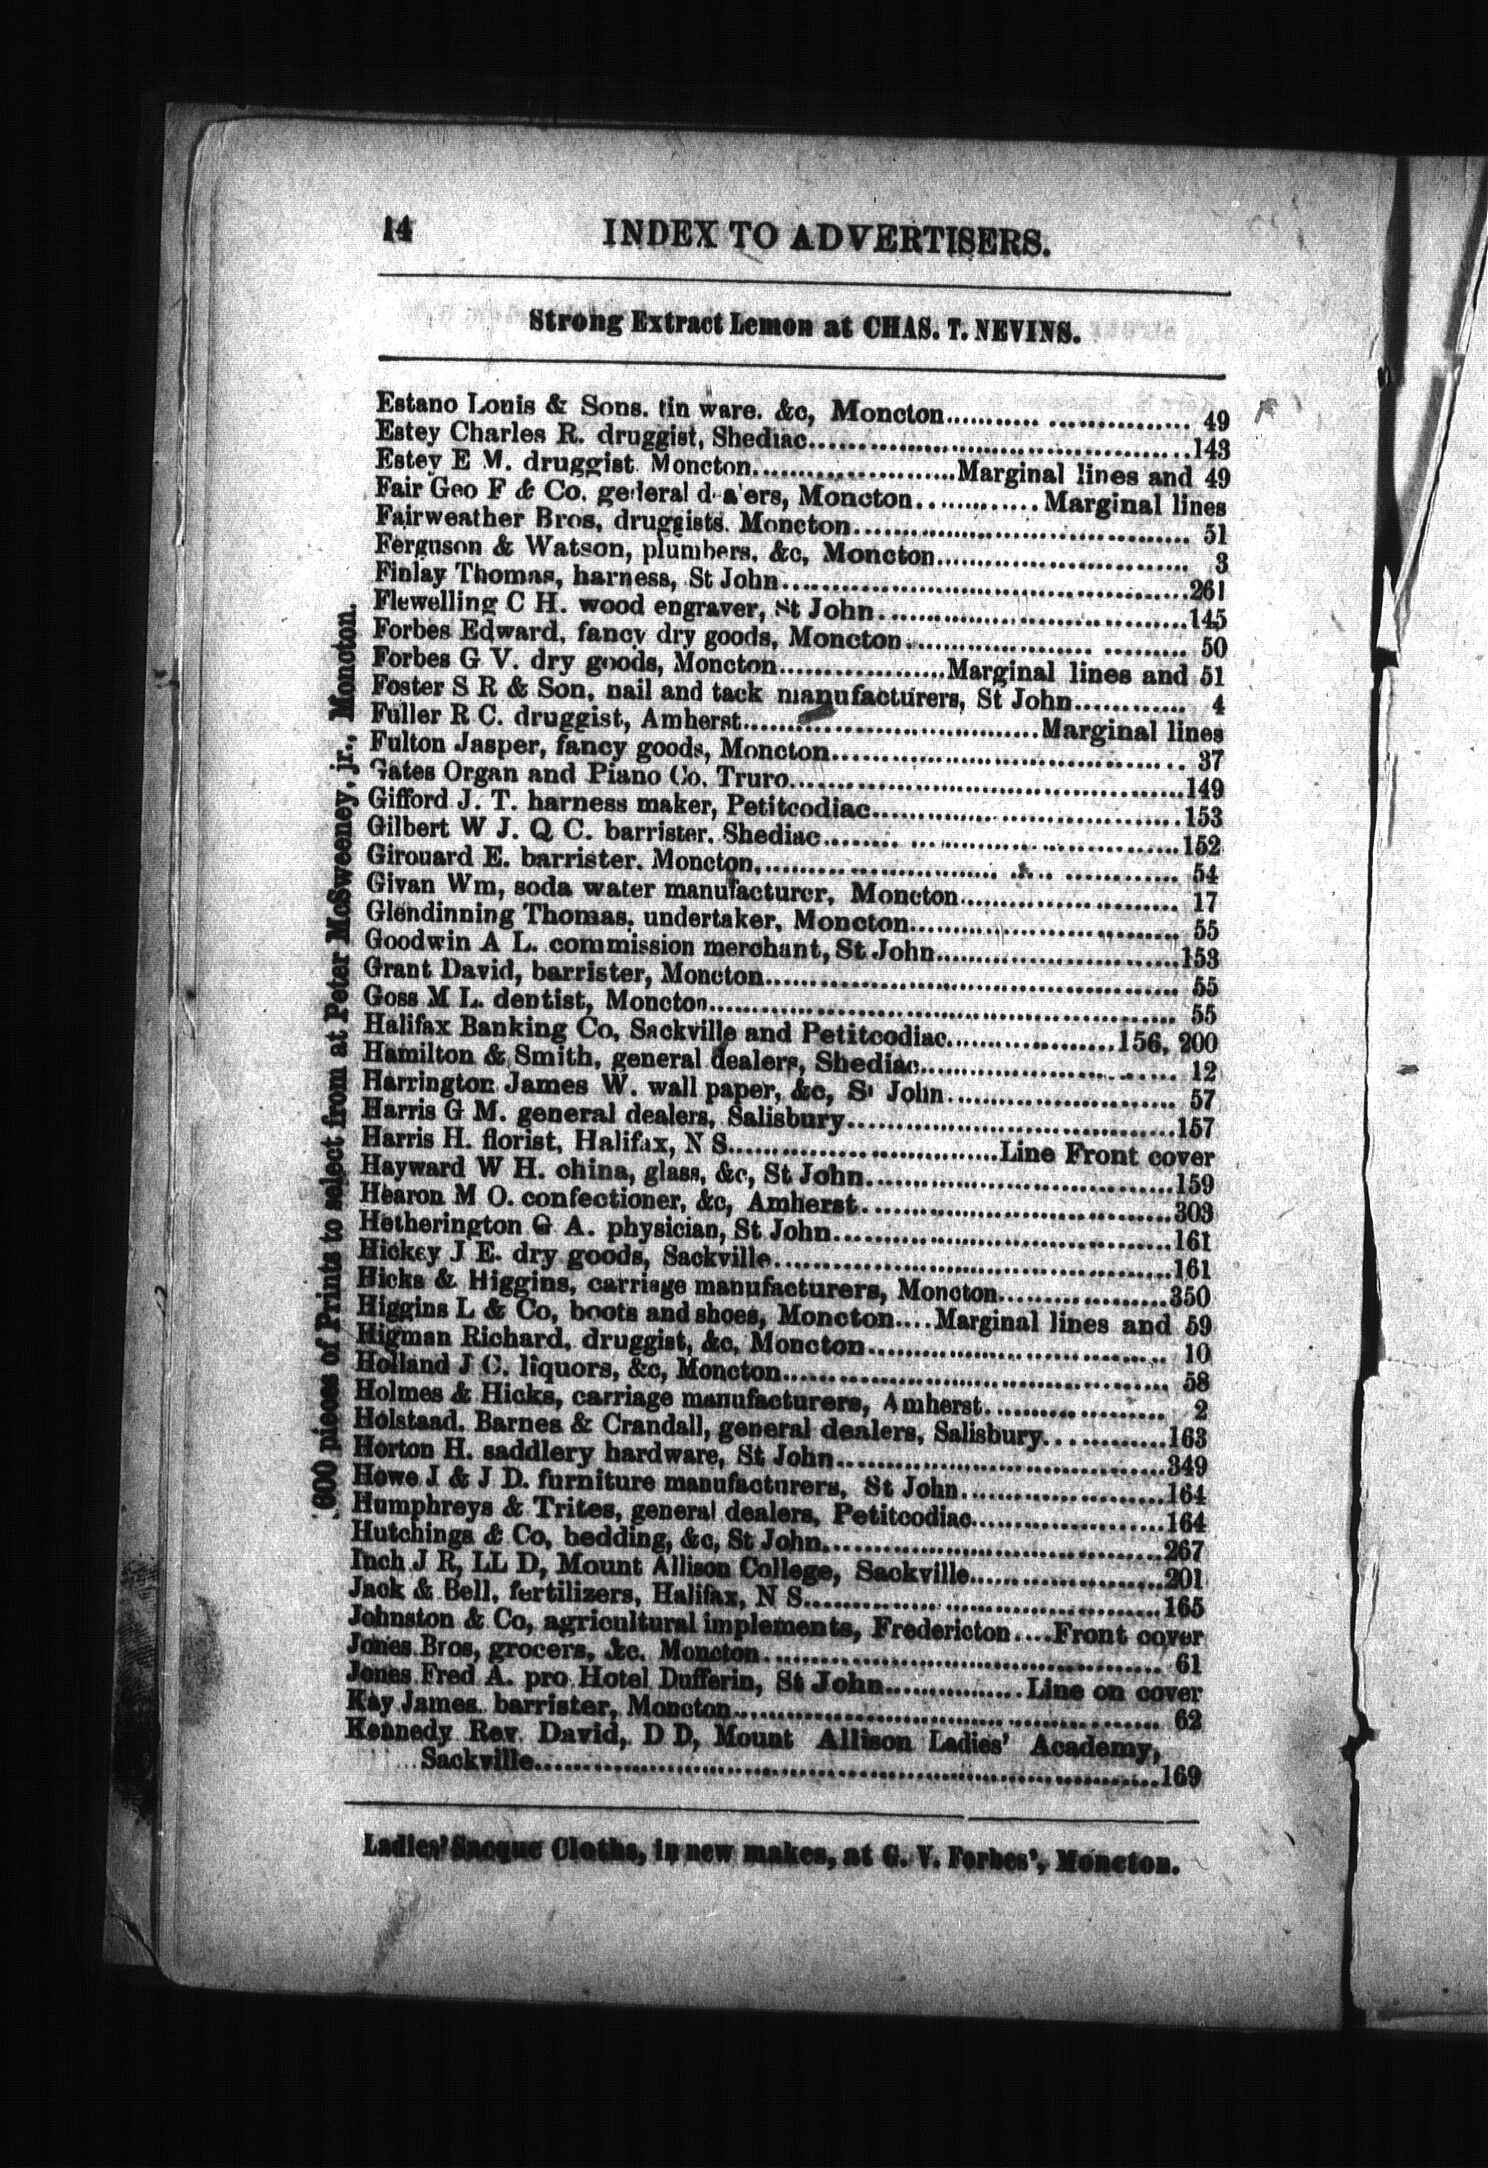 14 INDEX TO ADVERTISERS.
Strong Extract Lemon at CHAS. T. NEVINS.
Estano Louis & Sons. tin ware. &c, Moncton.................................. 49
Estey Charles R. druggist, Shediac..................................................143
Estey E M. druggist. Moncton..........................Marginal lines and 49
Fair Geo F & Co. general d-a'ers, Moncton............... Marginal lines
Fairweather Bros, druggists. Moncton............................................. 51
Ferguson & Watson, plumbers. &c, Moncton................................. 3
Finlay Thomas, harness, St John......................................................261
Flewelling C H. wood engraver, St John..........................................145
Forbes Edward, fancy dry goods, Moncton..................................... 50
Forbes G V. dry goods, Moncton......................Marginal lines and 51
Foster S R & Son, nail and tack manufacturers, St John............... 4
Fuller R C. druggist, Amherst.......................................Marginal lines
Fulton Jasper, fancy goods, Moncton............................................... 37
Gates Organ and Piano Co. Truro....................................................149
Gifford J. T. harness maker, Petitcodiac.........................................153
Gilbert W J. Q C. barrister. Shediac................................................152
Girouard E. barrister. Moncton,....................................................... 54
Givan Wm, soda water manufacturer, Moncton............................. 17
Glendinning Thomas, undertaker, Moncton................................... 55
Goodwin A L. commission merchant, St John................................153
Grant David, barrister, Moncton...................................................... 55
Goss M L. dentist, Moncton............................................................. 55
Halifax Banking Co, Sackville and Petitcodiac......................156, 200
Hamilton & Smith, general dealers, Shediac.................................. 12
Harrington James W. wall paper, &c, St John.............................. 57
Harris G M. general dealers, Salisbury............................................157
Harris H. florist, Halifax, N S....................................Line Front cover
Hayward W H. china, glass, &c, St John.........................................159
Hearon M O. confectioner, &c, Amherst.........................................303
Hetherington G A. physician, St John.............................................161
Hickey J E. dry goods, Sackville.....................................................161
Hicks & Higgins, carriage manufacturers, Moncton......................350
Higgins L & Co, boots and shoes, Moncton....Marginal lines and 59
Higman Richard, druggist, &c, Moncton........................................ 10
Holland J C. liquors, &c, Moncton.................................................. 58
Holmes & Hicks, carriage manufacturers, Amherst....................... 2
Holstaad. Barnes & Crandall, general dealers, Salisbury................163
Horton H. saddlery hardware, St John............................................349
Howe J & J D. furniture manufacturers, St John...........................164
Humphreys & Trites, general dealers, Petitcodiac.........................164
Hutchings & Co, bedding, &c, St John............................................267
Inch J R, LL D, Mount Allison College, Sackville.........................201
Jack & Bell, fertilizers, Halifax, N S...............................................165
Johnston & Co, agricultural implements, Fredericton....Front cover
Jones Bros, grocers, &c. Moncton.................................................... 61
Jones Fred A. pro Hotel Dufferin, St John..................Line on cover
Kay James. barrister, Moncton........................................................ 62
Kennedy Rev. David, D D, Mount Allison Ladies' Academy,
Sackville...................................................................................169
Ladies' Sacque Cloths, in new makes, at G. V. Forbes', Moncton.
600 pieces of Prints to select from at Peter McSweeney, jr., Moncton.